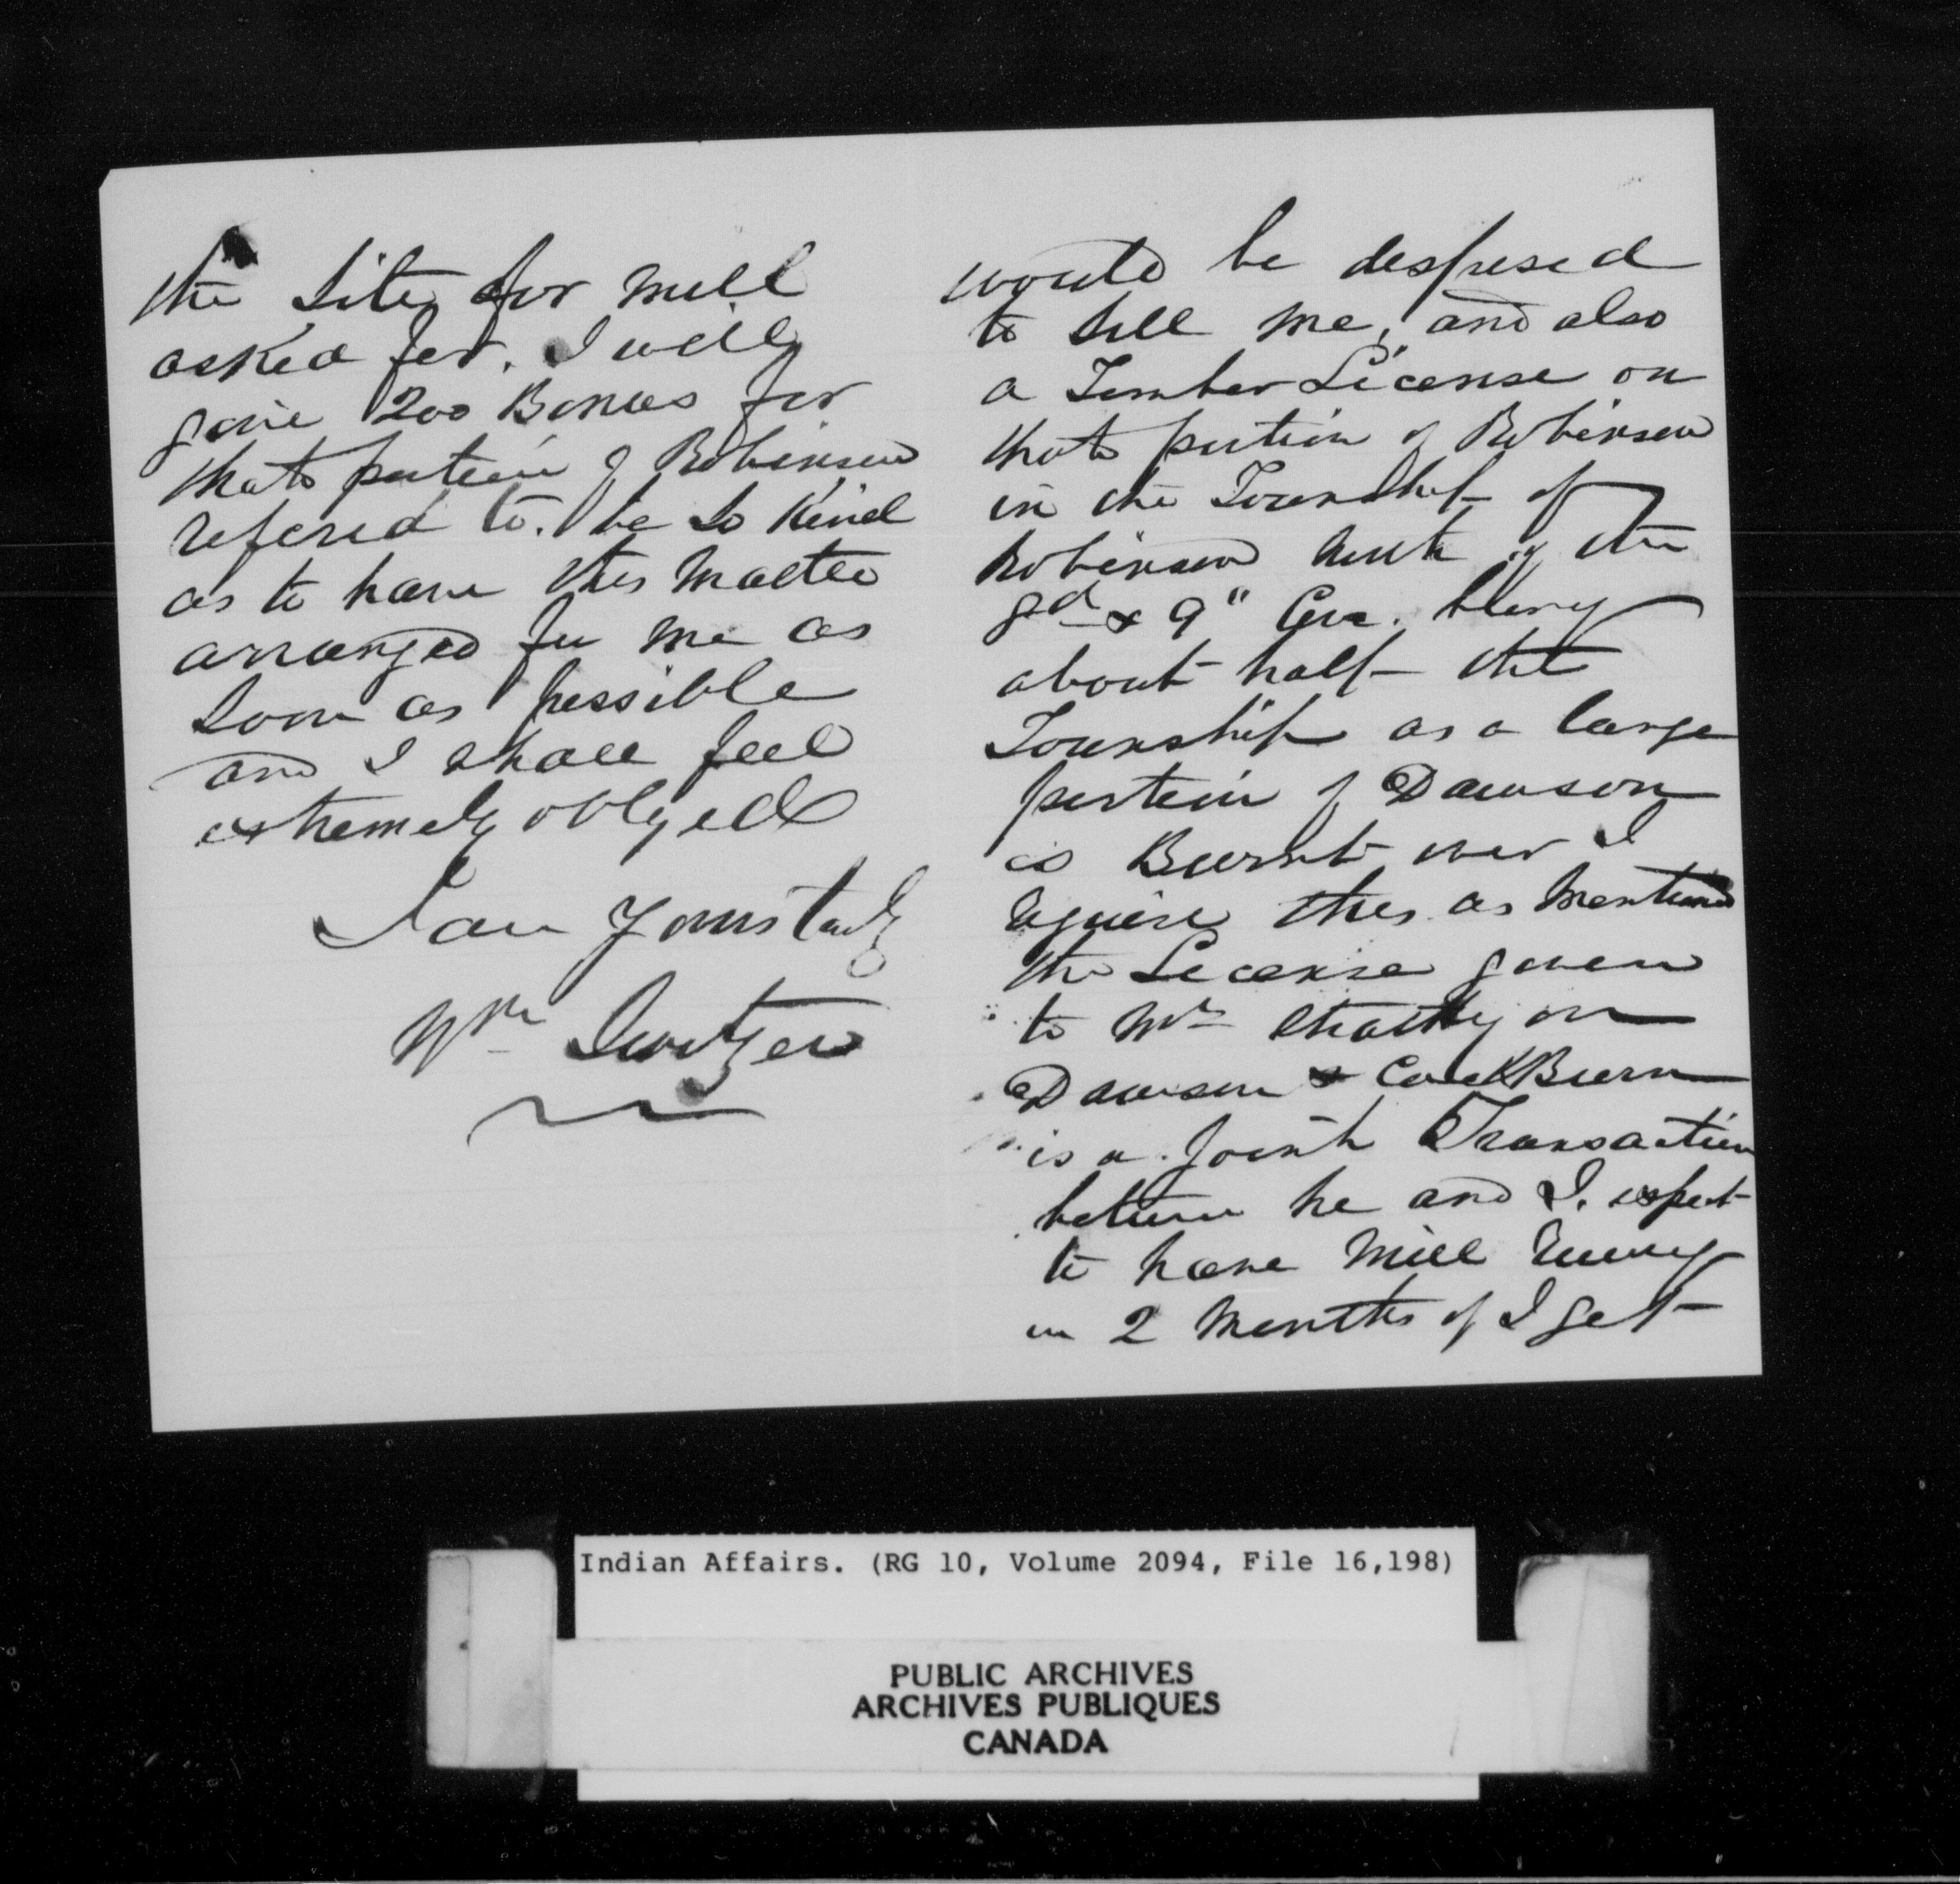 would be desposed
to sell me, and also
a Timber License on
that portion of Robinson
in the Township of
Robinson north of the
8d & 9" Con. being
about half the
Township as a large
portion of Dawson
is Burnt over I
require this as mentioned
the License given
to Mr on
Dawson &
is a Joint Transaction
between he and I. expect
to have Mill runing
in 2 Months if I get
the Site for mill
asked for. I will
give 200 Bonus for
that portion of Robinson
refered to. be so kind
as to have this matter
arranged for me as
soon as possible
and I shall feel
extremely oblyed
I am Yours truly
Wm Switzer
Indian Affairs. (RG 10, Volume 2094, File 16,198)
PUBLIC ARCHIVES
ARCHIVES PUBLIQUES
CANADA